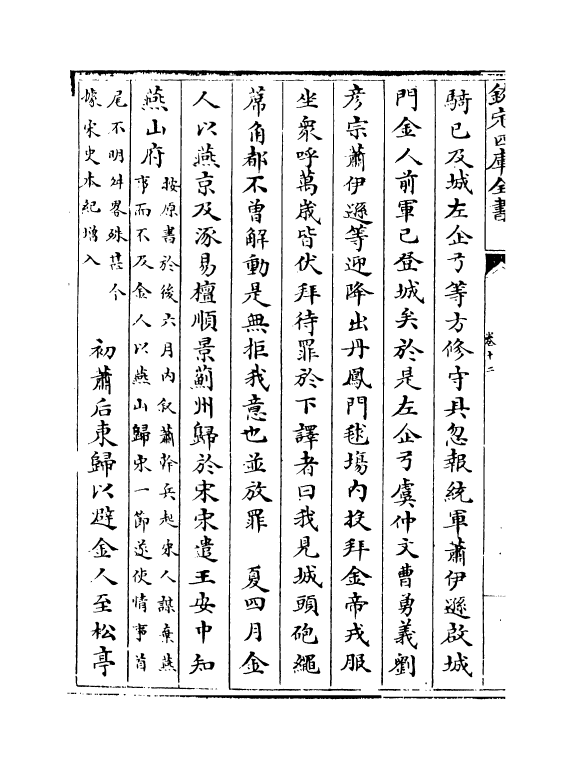 欽定四庫全書
卷十二
騎已及城左企弓等方修守具忽報統軍蕭伊遜啟城
門金人前軍已登城矣於是左企弓虞仲文曹勇義劉
彦宗蕭伊遜等迎降出丹鳳門毬場内投拜金帝戎服
坐衆呼萬歲皆伏拜待罪於下譯者曰我見城頭砲繩
蓆角都不曽解動是無拒我意也並放罪　夏四月金
人以燕京及涿易檀順景薊州歸於宋宋遣王安中知
燕山府
按原書於後六月内叙蕭幹兵起宋人謀棄燕
事而不及金人以燕山歸宋一節遂使情事首
尾不明舛畧殊甚今
㨿宋史本紀增入
初蕭后東歸以避金人至松亭